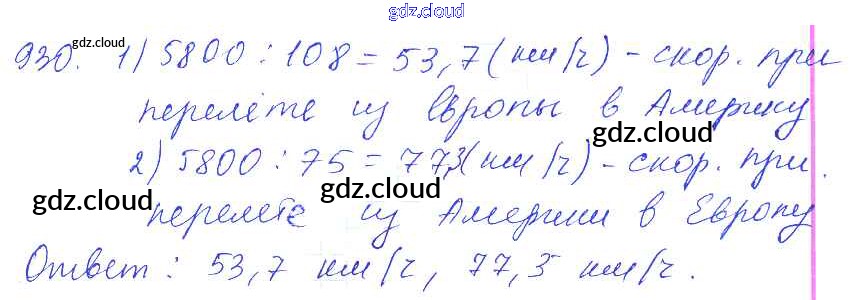 gdz.cloud
930. gdz.cloud 1) 5800 : 108 = 53,7 (км/ч) - скор. при
перелёте из Европы в Америку
gdz.cloud
2) 5800 : 75 = 77,3 (км/ч) - скор. при
gdz.cloud gdz.cloud
перелёте из Америки в Европу
Ответ: 53,7 км/ч, 77,3 км/ч.